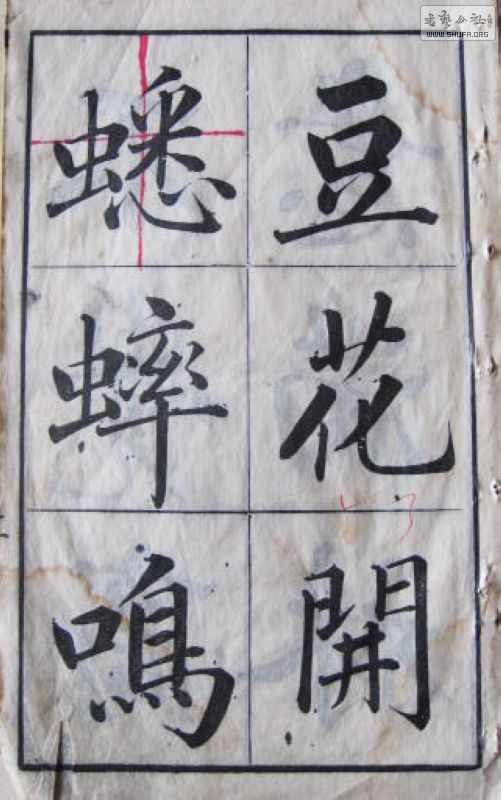 豆花開
蟋蟀鳴
WWW.SHUFA.ORG